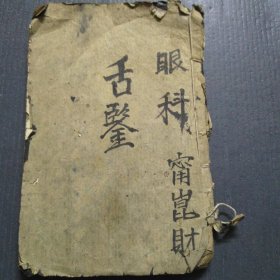 眼科
甯崑財
舌鑒